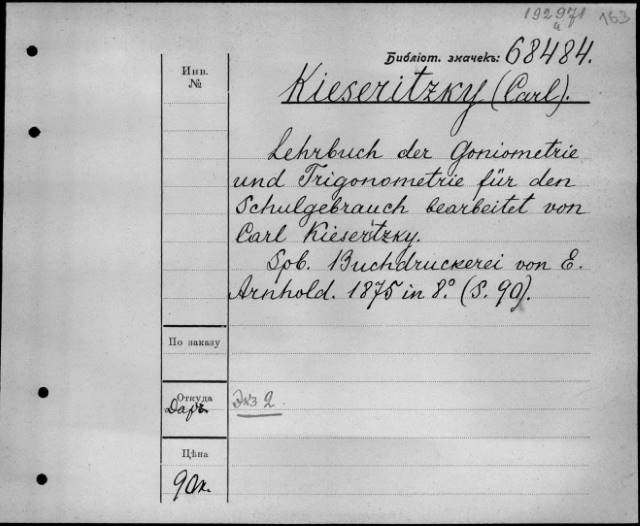 192971 153
Библiот. значекъ: 68484.
Инв.
№
Kieseritzky (Carl).
Lehrbuch der Goniometrie
und Trigonometrie für den
Schulgebrauch bearbeitet von
Carl Kieseritzky.
Spb. Buchdruckerei von E.
Arnhold. 1875 in 8.° (S. 90).
По заказу
Откуда
Даръ
Экз 2
Цѣна
90к.